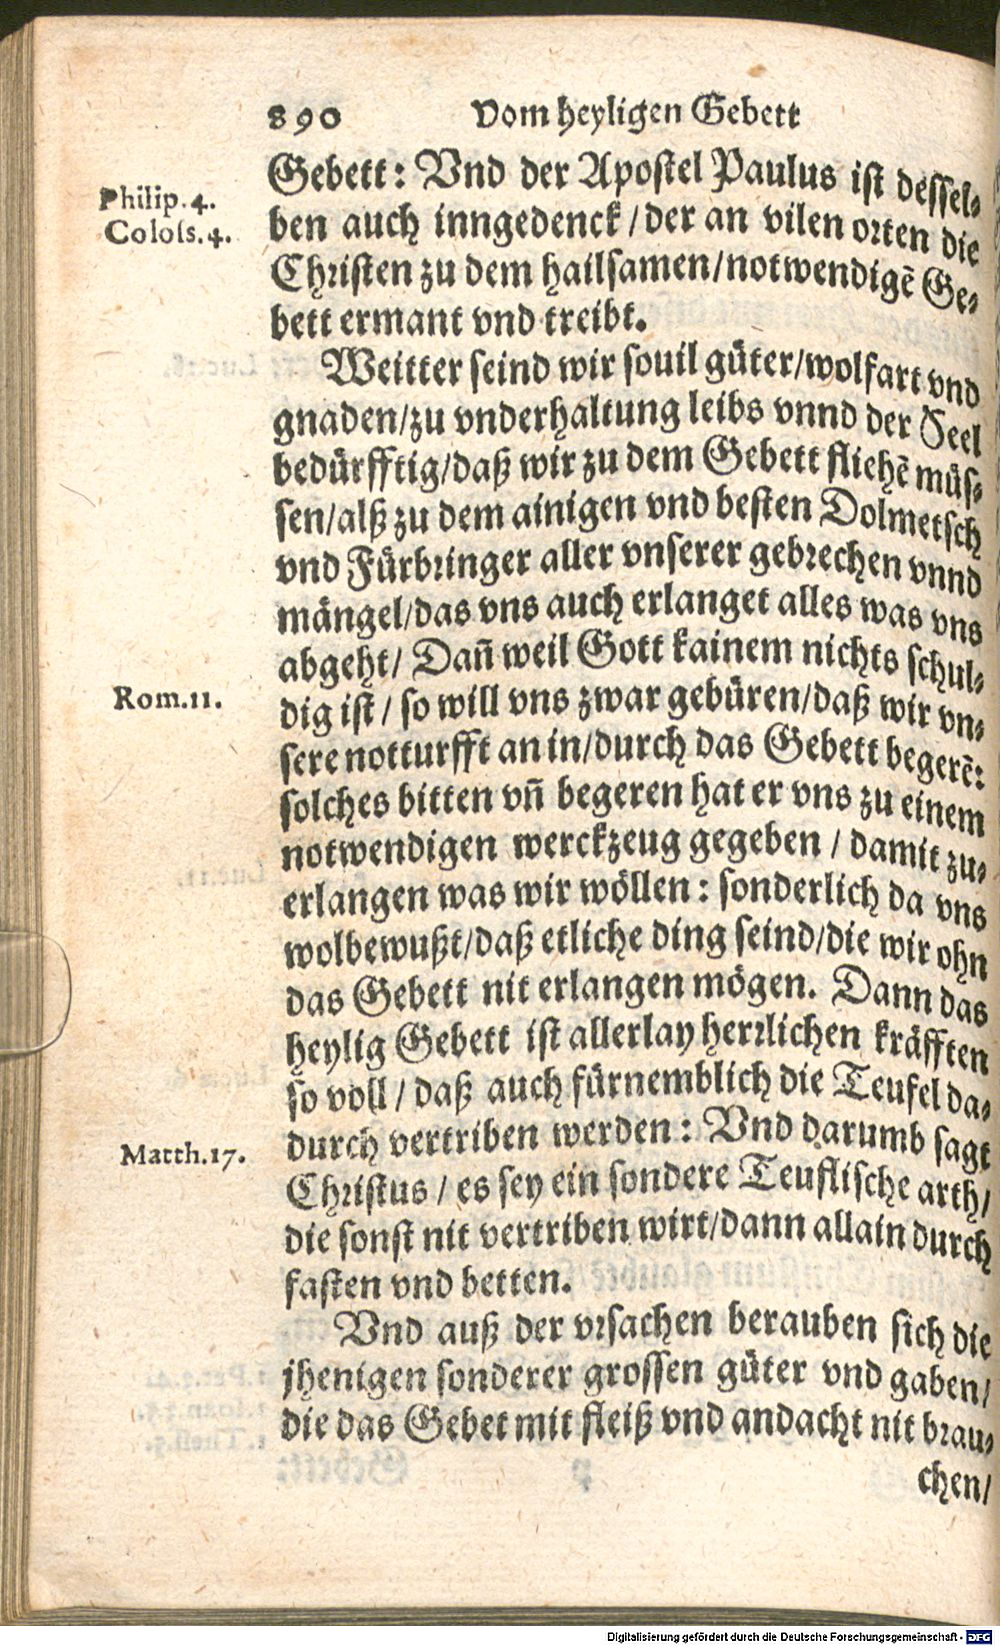 890 Vom heyligen Gebett
Gebett: Vnd der Apostel Paulus ist dessel-
Philip.4.
ben auch inngedenck/der an vilen orten die
Coloss.4.
Christen zu dem hailsamen/notwendigẽ Ge-
bett ermant vnd treibt.
Weitter seind wir souil güter/wolfart vnd
gnaden/zu vnderhaltung leibs vnnd der Seel
bedürfftig/daß wir zu dem Gebett fliehẽ müs-
sen/alß zu dem ainigen vnd besten Dolmetsch
vnd Fürbringer aller vnserer gebrechen vnnd
mängel/das vns auch erlanget alles was vns
abgeht/ Dañ weil Gott kainem nichts schul-
Rom.11.
dig ist/ so will vns zwar gebüren/daß wir vn-
sere notturfft an in/durch das Gebett begerẽ:
solches bitten vñ begeren hat er vns zu einem
notwendigen werckzeug gegeben / damit zu-
erlangen was wir wöllen: sonderlich da vns
wolbewußt/daß etliche ding seind/die wir ohn
das Gebett nit erlangen mögen. Dann das
heylig Gebett ist allerlay herrlichen kräfften
so voll / daß auch fürnemblich die Teufel da-
durch vertriben werden: Vnd darumb sagt
Matth.17.
Christus / es sey ein sondere Teuflische arth/
die sonst nit vertriben wirt/dann allain durch
fasten vnd betten.
Vnd auß der vrsachen berauben sich die
jhenigen sonderer grossen güter vnd gaben/
die das Gebet mit fleiß vnd andacht nit brau-
chen/
Digitalisierung gefördert durch die Deutsche Forschungsgemeinschaft - DFG